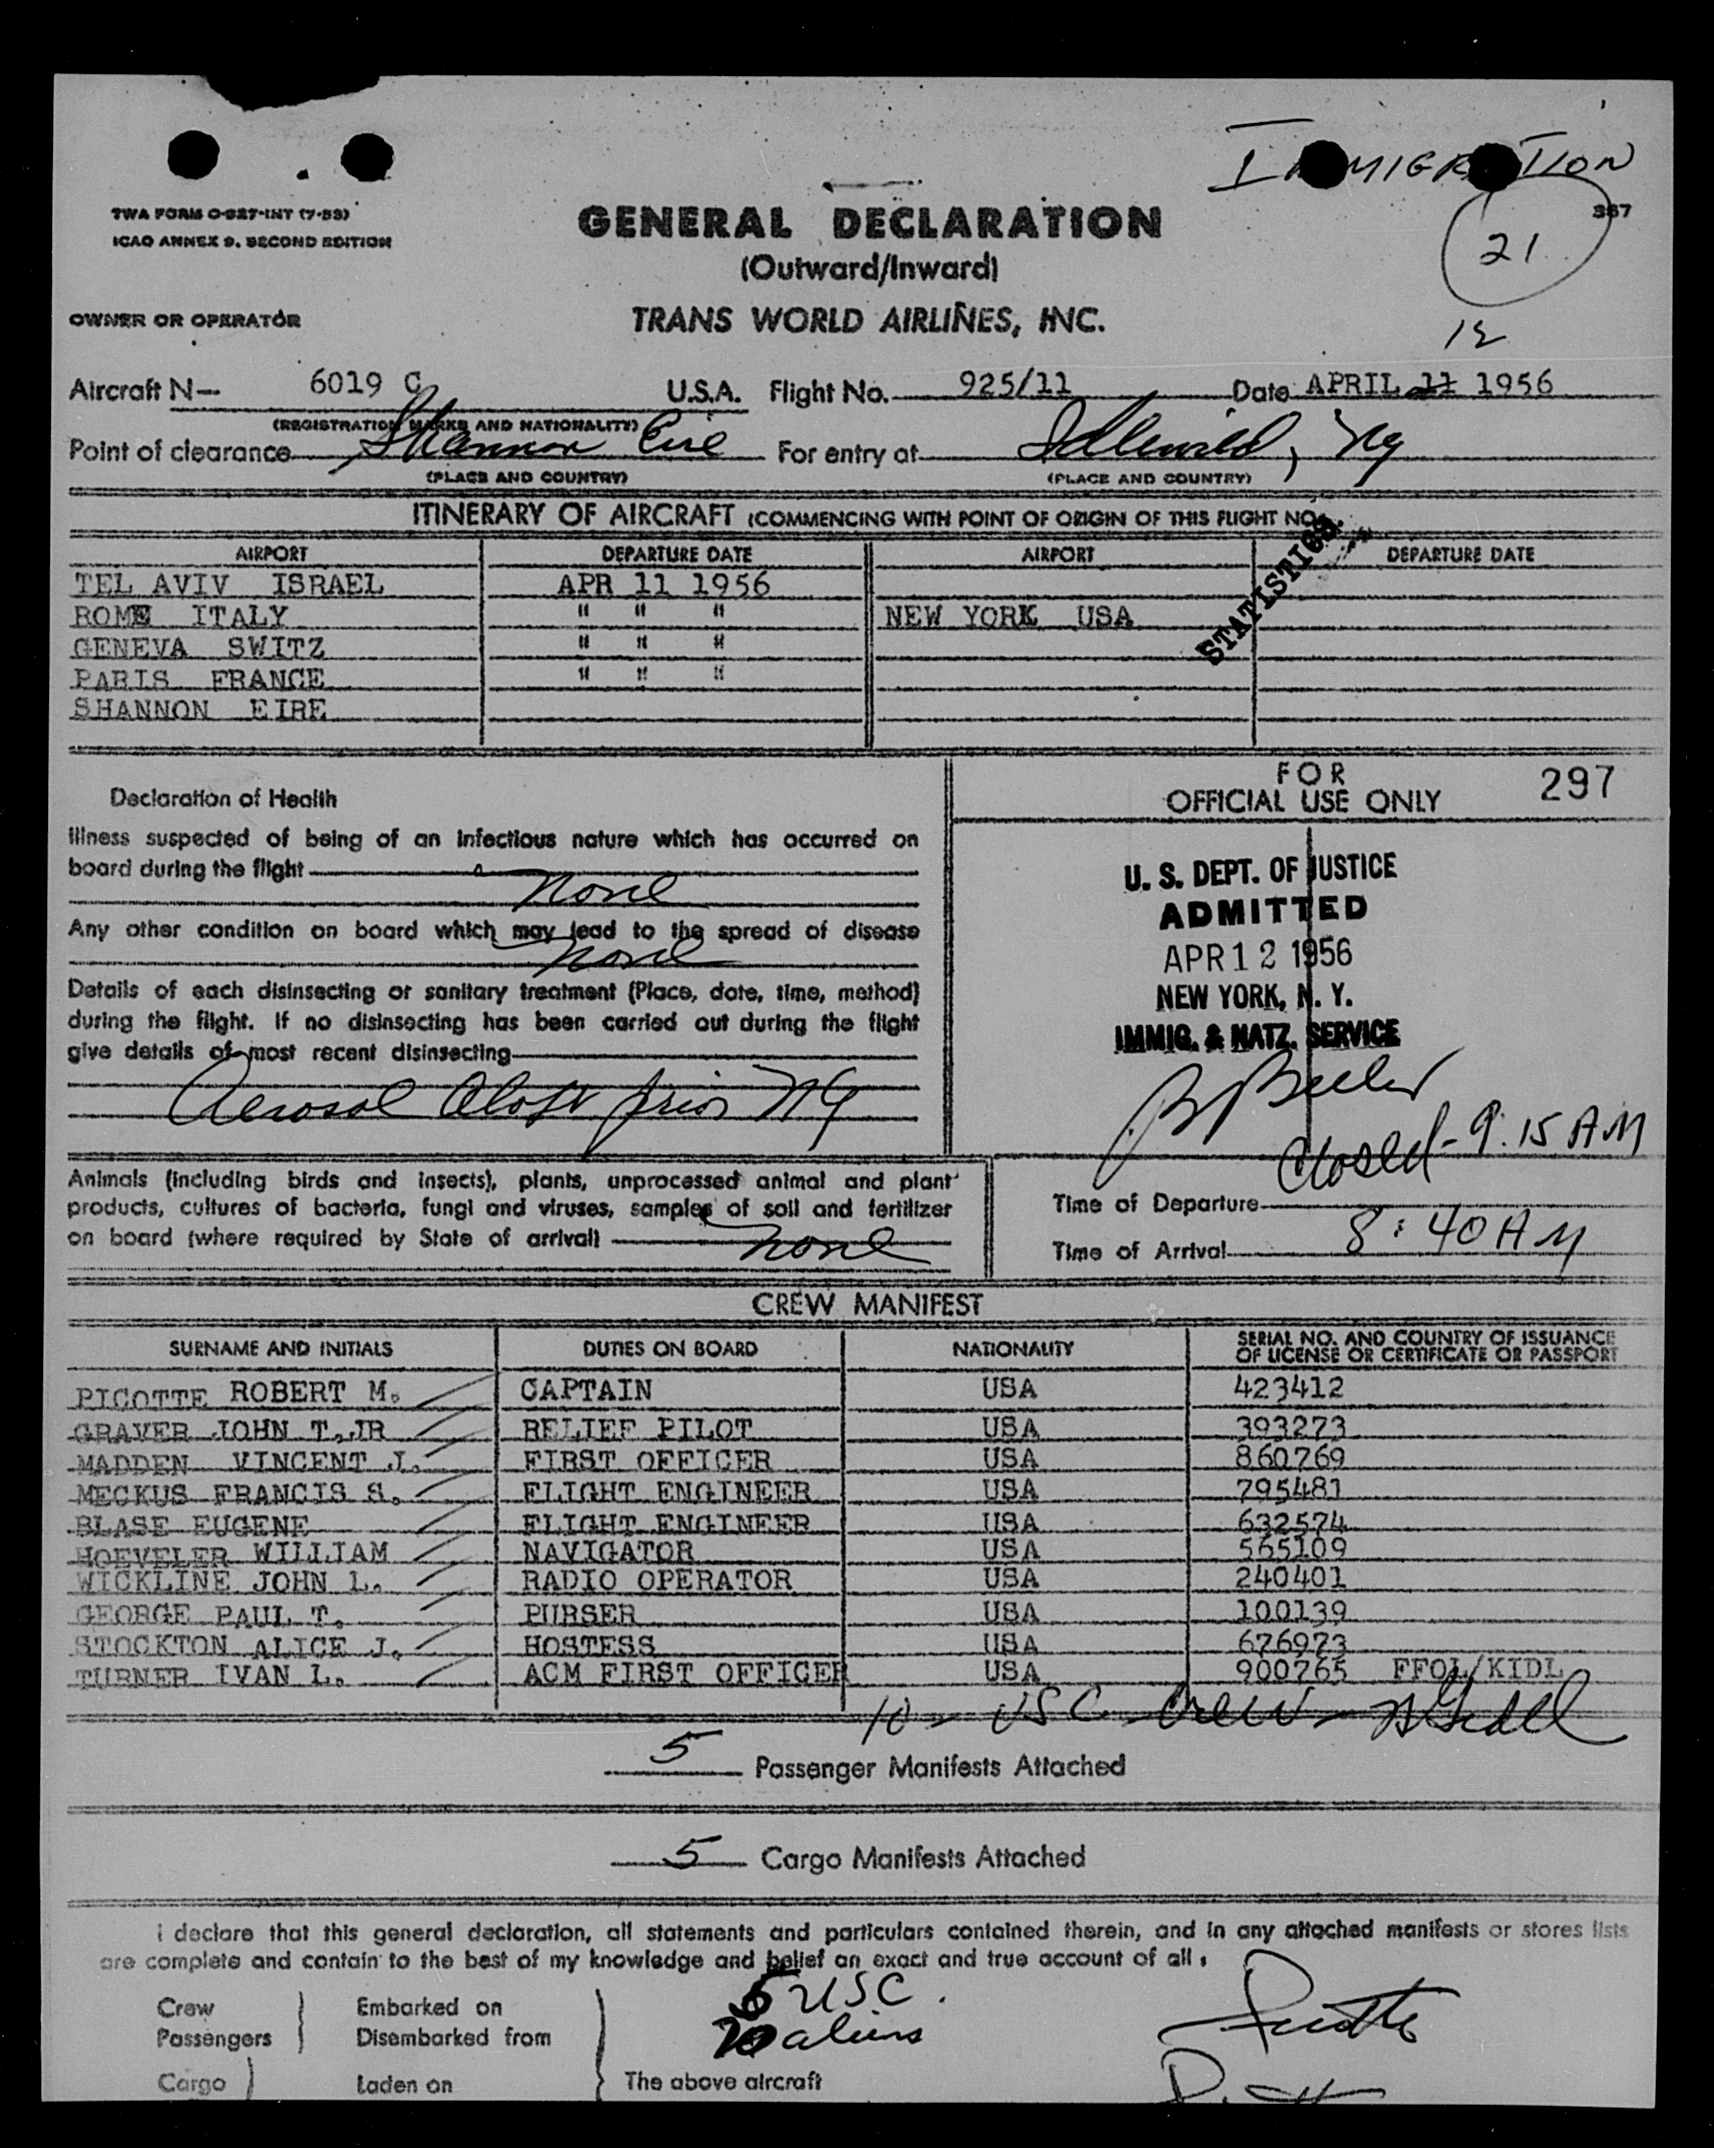 IMMIGRATION
TWA FORM O-927-INT (7-53)
ICAO ANNEX 9, SECOND EDITION
367
21
GENERAL DECLARATION
(Outward/Inward)
OWNER OR OPERATOR
TRANS WORLD AIRLINES, INC.
12
Aircraft N— 6019 C U.S.A. Flight No. 925/11 Date APRIL 11 1956
(REGISTRATION MARKS AND NATIONALITY)
Point of clearance Shannon Eire For entry at Idlewild, NY
(PLACE AND COUNTRY) (PLACE AND COUNTRY)
ITINERARY OF AIRCRAFT (COMMENCING WITH POINT OF ORIGIN OF THIS FLIGHT NO.
STATISTICS.
AIRPORT DEPARTURE DATE AIRPORT DEPARTURE DATE
TEL AVIV ISRAEL APR 11 1956
ROME ITALY " " " NEW YORK USA
GENEVA SWITZ " " "
PARIS FRANCE " " "
SHANNON EIRE
Declaration of Health
Illness suspected of being of an infectious nature which has occurred on
board during the flight
None
Any other condition on board which may lead to the spread of disease
None
Details of each disinsecting or sanitary treatment (Place, date, time, method)
during the flight. If no disinsecting has been carried out during the flight
give details of most recent disinsecting
Aerosol Aloft prior NY
FOR
OFFICIAL USE ONLY
297
U. S. DEPT. OF JUSTICE
ADMITTED
APR 12 1956
NEW YORK, N. Y.
IMMIG. & NATZ. SERVICE
Closed - 9:15 AM
Animals (including birds and insects), plants, unprocessed animal and plant
products, cultures of bacteria, fungi and viruses, samples of soil and fertilizer
on board (where required by State of arrival) None
Time of Departure
Time of Arrival 8:40 AM
CREW MANIFEST
SURNAME AND INITIALS DUTIES ON BOARD NATIONALITY SERIAL NO. AND COUNTRY OF ISSUANCE
OF LICENSE OR CERTIFICATE OR PASSPORT
PICOTTE ROBERT M. CAPTAIN USA 423412
GRAVER JOHN T.JR RELIEF PILOT USA 393273
MADDEN VINCENT J. FIRST OFFICER USA 860769
MECKUS FRANCIS S. FLIGHT ENGINEER USA 795481
BLASE EUGENE FLIGHT ENGINEER USA 632574
HOEVELER WILLIAM NAVIGATOR USA 565109
WICKLINE JOHN L. RADIO OPERATOR USA 240401
GEORGE PAUL T. PURSER USA 100139
STOCKTON ALICE J. HOSTESS USA 676973
TURNER IVAN L. ACM FIRST OFFICER USA 900765 FFOL/KIDL
10 - USC Crew -
5 Passenger Manifests Attached
5 Cargo Manifests Attached
I declare that this general declaration, all statements and particulars contained therein, and in any attached manifests or stores lists
are complete and contain to the best of my knowledge and belief an exact and true account of all:
Crew Embarked on
Passengers Disembarked from
Cargo Laden on The above aircraft
USC.
aliens
Picotte